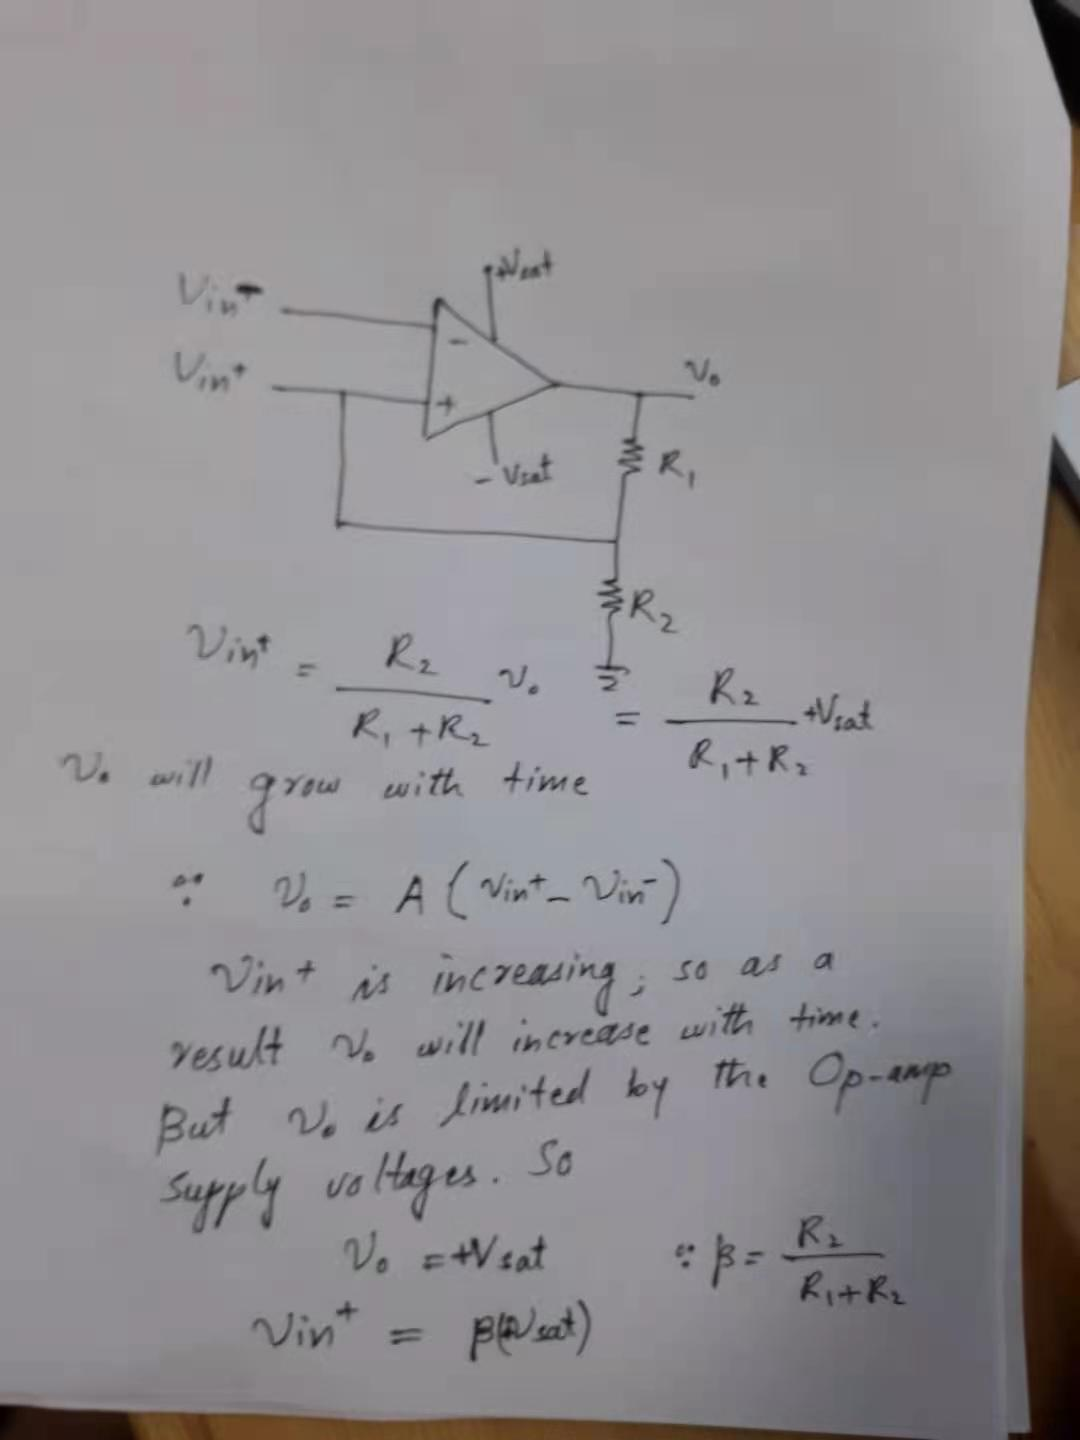 +Vsat
Vin-
Vin+
-
+
Vo
- Vsat
R1
R2
Vin+ = R2 / R1 + R2 Vo = R2 / R1 + R2 +Vsat
Vo will grow with time
∵ Vo = A ( Vin+ - Vin- )
Vin+ is increasing, so as a
result Vo will increase with time.
But Vo is limited by the Op-amp
supply voltages. So
Vo = +Vsat ∵ β = R2 / R1 + R2
Vin+ = β(+Vsat)